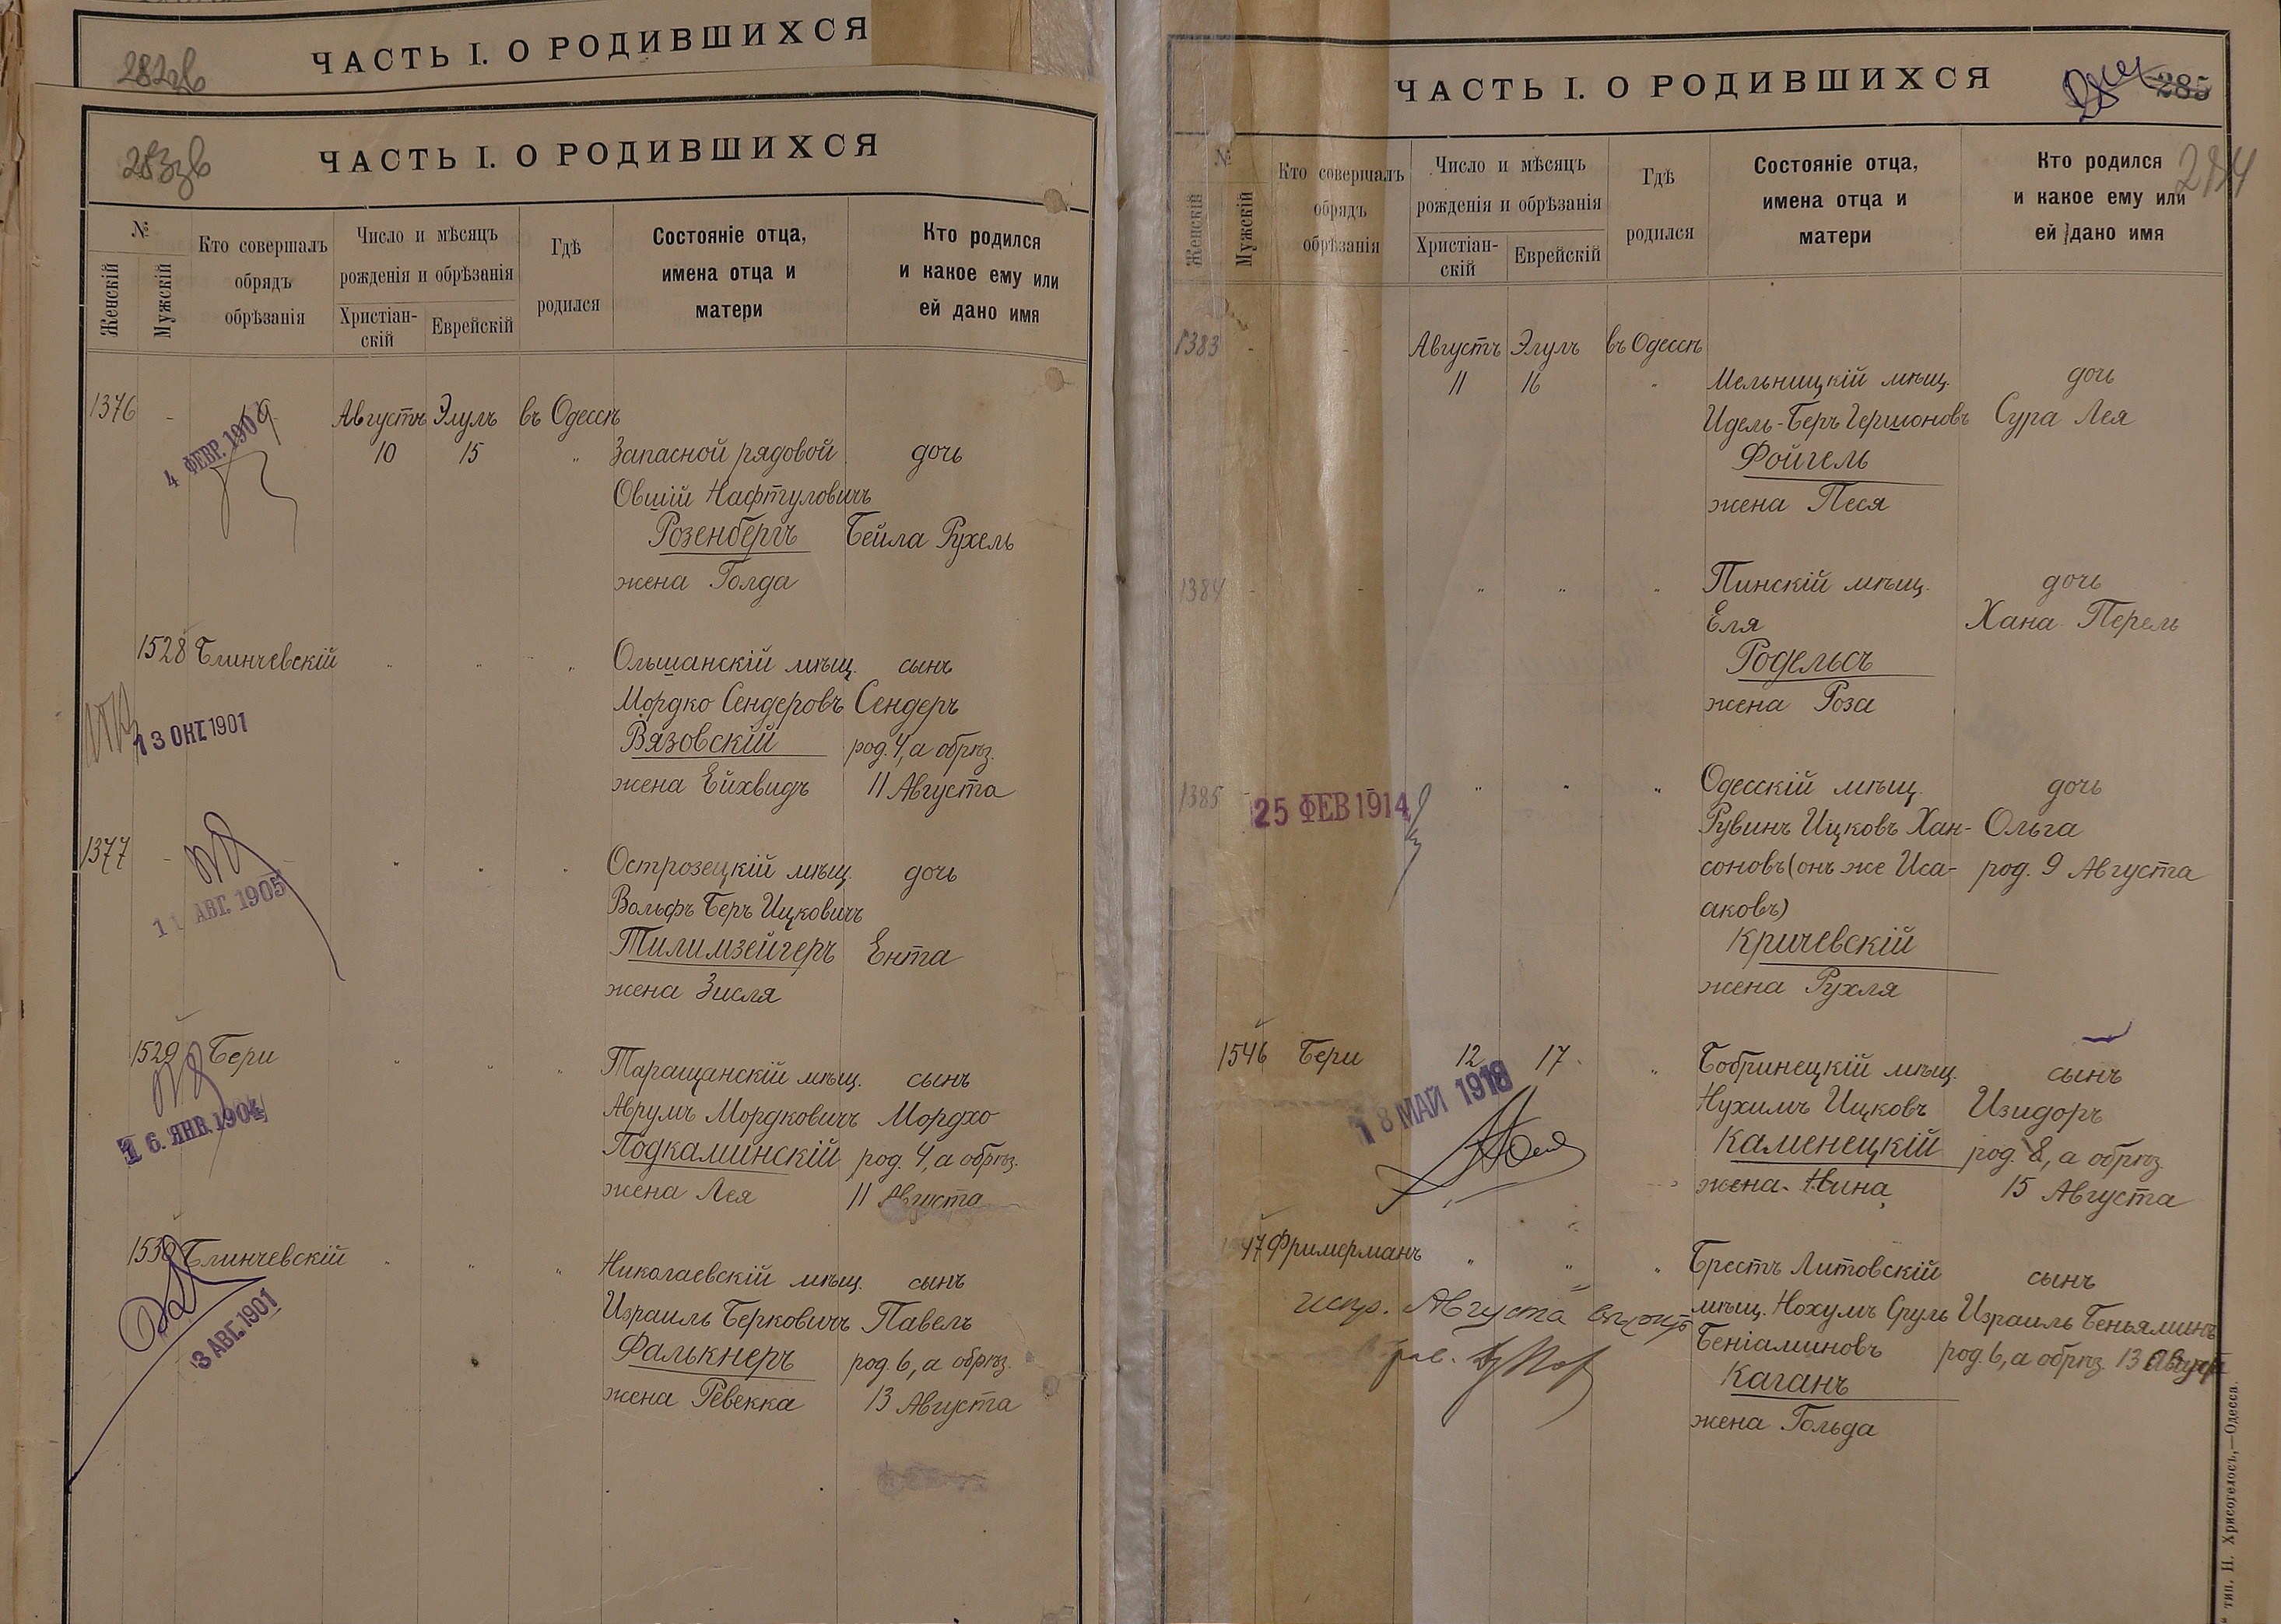 282об
ЧАСТЬ I. О РОДИВШИХСЯ
283об
ЧАСТЬ I. О РОДИВШИХСЯ
№
Женскій
Мужскій
Кто совершалъ
обрядъ
обрѣзанія
Число и мѣсяцъ
рожденія и обрѣзанія
Христіан-
скій
Еврейскій
Гдѣ
родился
Состояніе отца,
имена отца и
матери
Кто родился
и какое ему или
ей дано имя
1376 - Августъ Элулъ въ Одессѣ
4 ФЕВР. 1909
10 15 " Запасной рядовой дочь
Овшій Нафтуловичъ
Розенбергъ Бейла Рухель
жена Голда
1528 Блинчевскій " " " Ольшанскій мѣщ. сынъ
Мордко Сендеровъ Сендеръ
13 ОКТ. 1901
Вязовскій род. 4, а обрѣз.
жена Ейхвидъ 11 Августа
1377 - - " " " Острозецкій мѣщ. дочь
11 АВГ. 1905
Вольфъ Беръ Ицковичъ
Тилимзейгеръ Ента
жена Зисля
1529 Бери " " " Таращанскій мѣщ. сынъ
Аврумъ Мордковичъ Мордхо
16. ЯНВ. 1904
Подкаминскій род. 4, а обрѣз.
жена Лея 11 Августа
1530 Блинчевскій " " " Николаевскій мѣщ. сынъ
Израиль Берковичъ Павелъ
3 АВГ. 1901
Фалькнеръ род. 6, а обрѣз.
жена Ревекка 13 Августа
ЧАСТЬ I. О РОДИВШИХСЯ
285
284
№
Женскій
Мужскій
Кто совершалъ
обрядъ
обрѣзанія
Число и мѣсяцъ
рожденія и обрѣзанія
Христіан-
скій
Еврейскій
Гдѣ
родился
Состояніе отца,
имена отца и
матери
Кто родился
и какое ему или
ей дано имя
1383 - - Августъ Элулъ въ Одессѣ
11 16 " Мельницкій мѣщ. дочь
Идель-Беръ Гершоновъ Сура Лея
Фойгель
жена Песя
1384 - - " " " Пинскій мѣщ. дочь
Еля Хана Перель
Родельсъ
жена Роза
1385 - " " " Одесскій мѣщ. дочь
25 ФЕВ 1914
Рувинъ Ицковъ Хан- Ольга
соновъ (онъ же Иса- род. 9 Августа
аковъ)
Кричевскій
жена Рухля
1546 Бери 12 17 " Бобринецкій мѣщ. сынъ
18 МАЙ 1918
Нухимъ Ицковъ Изидоръ
Каменецкій род. 8, а обрѣз.
жена Нина 15 Августа
1547 Фримерманъ " " " Брестъ Литовскій сынъ
мѣщ. Нохумъ Сруль Израиль Беньяминъ
испр. Августа
Беніаминовъ род. 6, а обрѣз. 13 Августа
Каганъ
жена Гольда
тип. Н. Хрисогелосъ,—Одесса.